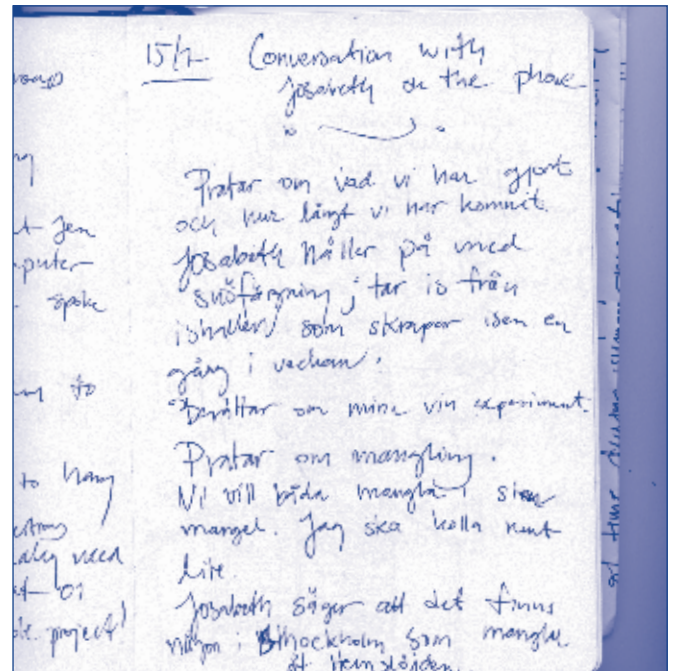 15/2 Conversation with
Josabeth on the phone
Pratar om vad vi har gjort
och hur långt vi har kommit.
Josabeth håller på med
snöfärgning; tar is från
ishallen som skrapar isen en
gång i veckan.
Berättar om mina vin experiment.
Pratar om mangling.
Vi vill båda mangla i sten
mangel. Jag ska kolla runt
lite.
Josabeth säger att det finns
någon i Stockholm som manglar
åt Hemslöjden.
roup
t Jen
puter
spoke
to
to hang
need
project!